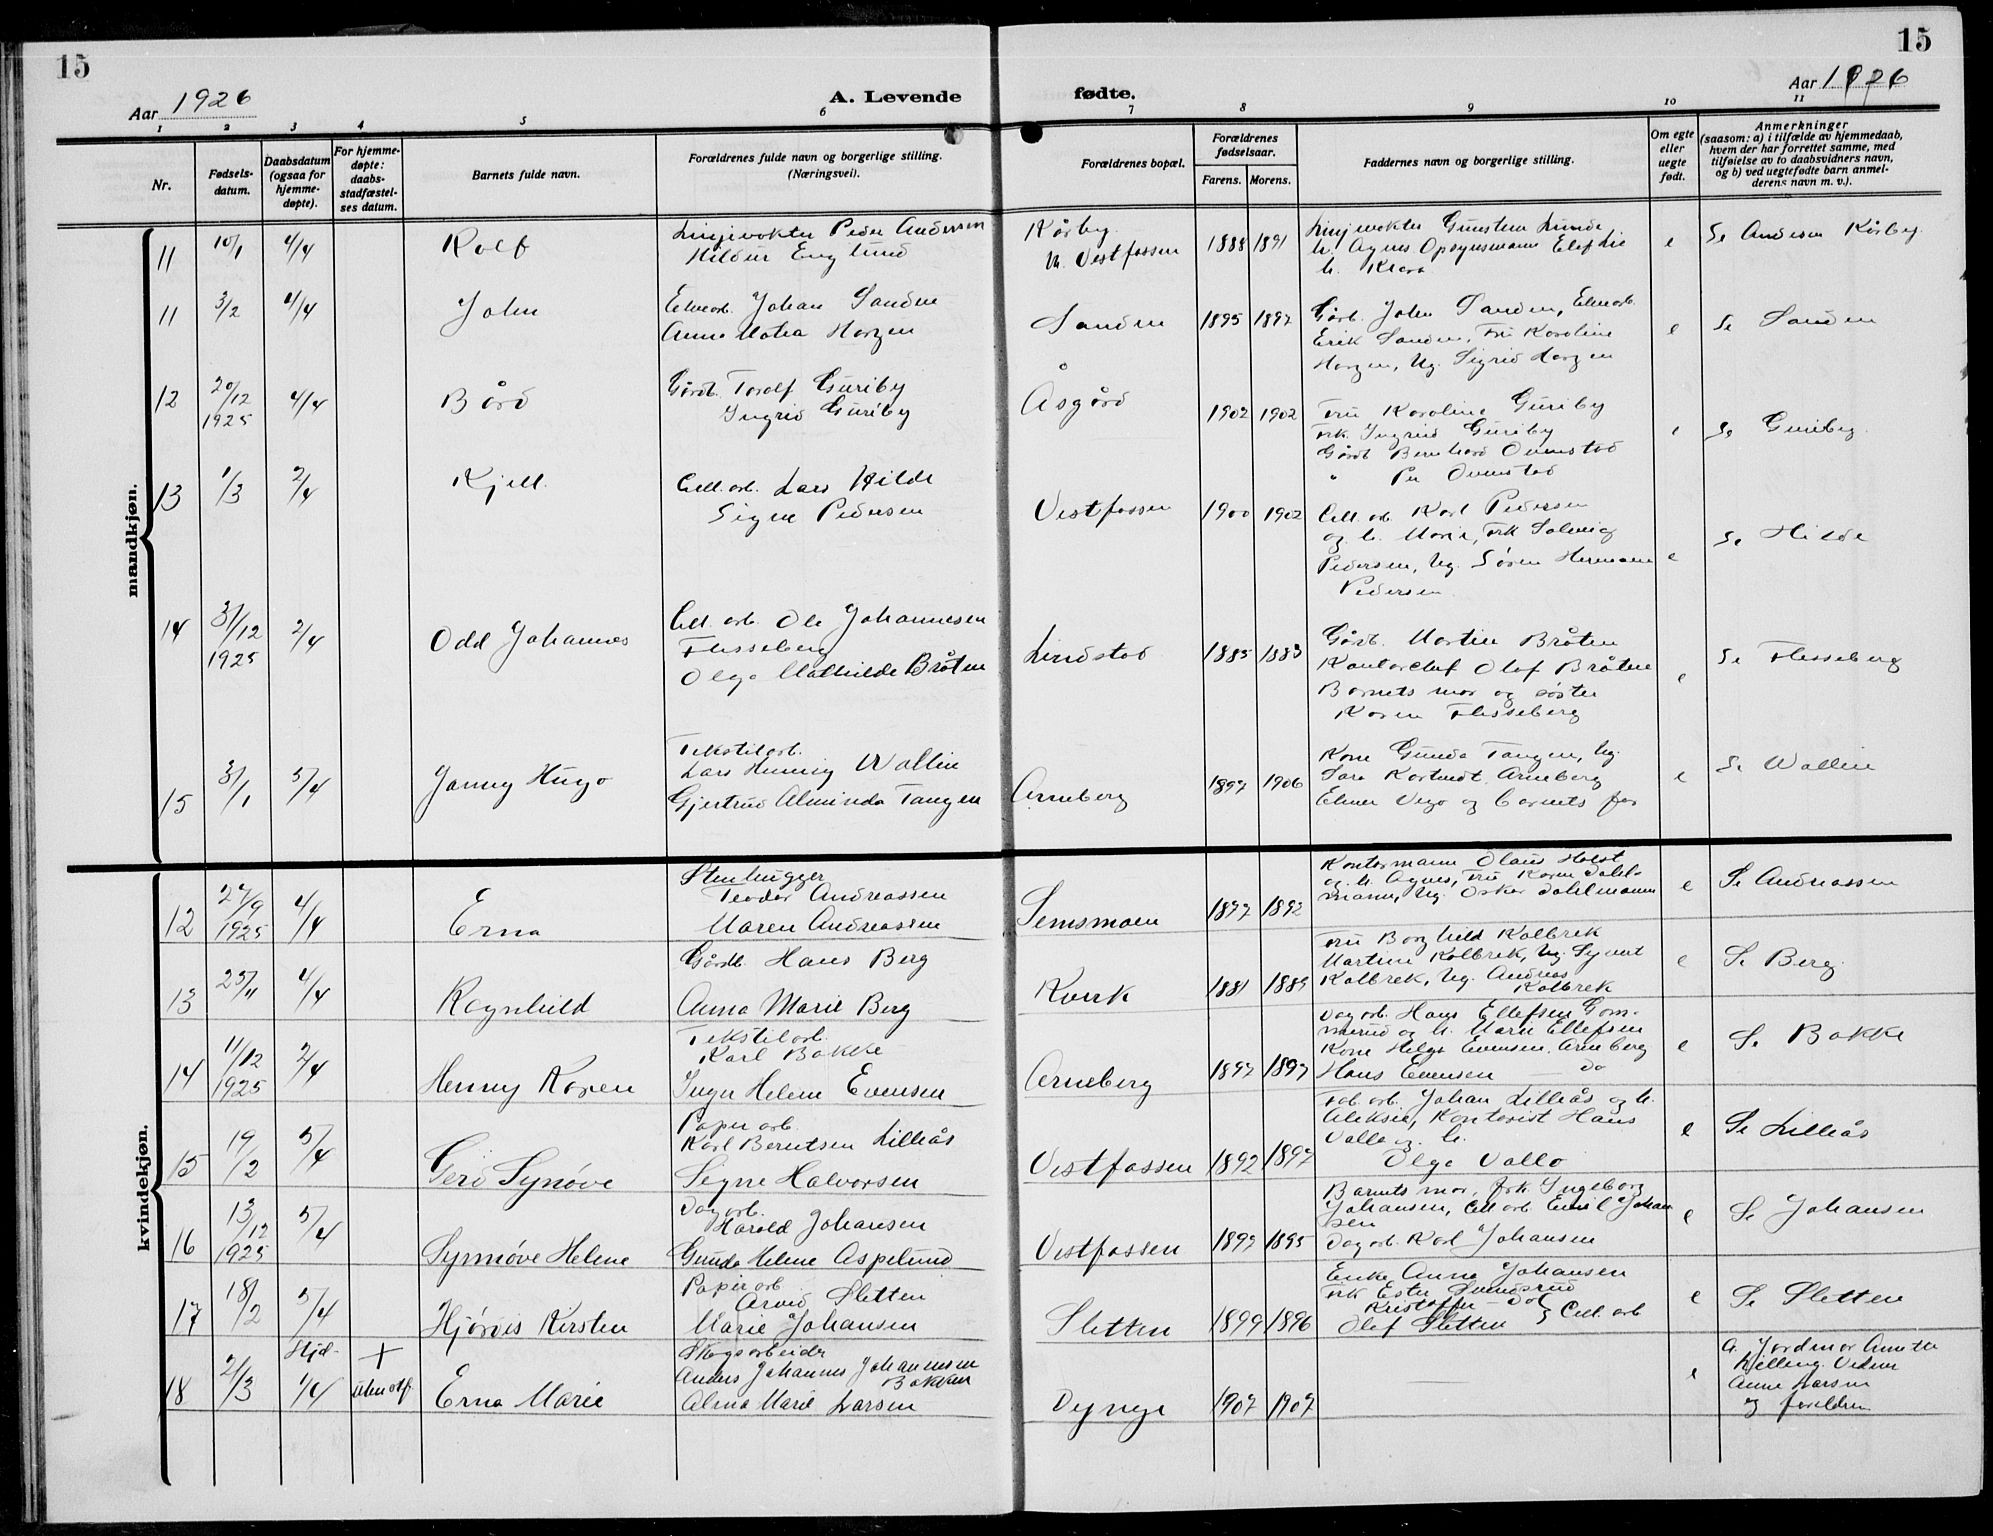 15
15
Aar 1926
A. Levende fødte.
Aar 1926
1 2 3 4 5 6 7 8 9 10 11
Nr.
Fødsels-
datum.
Daabsdatum
(ogsaa for
hjemme-
døpte).
For hjemme-
døpte:
daabs-
stadfæstel-
ses datum.
Barnets fulde navn.
Forældrenes fulde navn og borgerlige stilling.
(Næringsvei).
Forældrenes bopæl.
Forældrenes
fødselsaar.
Farens. Morens.
Faddernes navn og borgerlige stilling.
Om egte
eller
uegte
født.
Anmerkninger
(saasom: a) i tilfælde av hjemmedaab,
hvem der har forrettet samme, med
tilføielse av to daabsvidners navn,
og b) ved uegtefødte barn anmel-
derens navn m. v.).
mandkjøn.
11 10/1 4/4 Rolf
Linjevokter Peder Andersen
Hildur Englund
Kårby
Vestfossen
1888 1891
Linjevokter Gunsten Lunde
h. Agnes Opsynsmann Elef Lie
h. Klara
e
Se Andersen Kårby
11 3/2 4/4 John
Johan Sanden
Anna Horgen
Sanden
1895 1897
Gårb. John Sanden,
Erik Sanden, Fru Karoline
Horgen, Ug. Sigrid Horgen
e
Se Sanden
12 20/12 1925 4/4 Bård
Gårdb. Toralf Guriby
Ingrid Guriby
Åsgård
1902 1902
Fru Karoline Guriby
Frk. Ingrid Guriby
Gårdb Bernhard Ormstad
" Per Ormstad
e
Se Guriby
13 1/3 2/4 Kjell
Cell. arb. Lars Hilde
Signe Pedersen
Vestfossen
1900 1902
Cell. arb. Karl Pedersen
og h. Marie, Frk Solveig
Pedersen, Ug. Søren Hermann
Pedersen
e
Se Hilde
14 31/12 1925 2/4 Odd Johannes
Cell. arb. Ole Johannesen
Flesseberg
Olga Mathilde Bråten
Lindstad
1885 1883
Gårb. Martin Bråten
Kontorchef Olaf Bråten
Barnets mor og søster
Karen Flesseberg
e
Se Flesseberg
15 31/1 5/4 Janny Hugo
Tekstilarb.
Lars Henning Wallin
Gjertrud Alminda Tangen
Arneberg
1897 1906
Kone Gunda Tangen, Ug.
Sara Arneberg
og barnets far
e
Se Wallin
kvindekjøn.
12 27/9 1925 4/4 Erna
Stenhugger
Teodor Andreassen
Maren Andreassen
Semsmoen
1897 1892
Olaus Holst
og h. Agnes, Fru Karen Dahl-
mann, Ug. Oskar Dahlmann
e
Se Andreassen
13 25/11 4/4 Ragnhild
Gårdb. Hans Berg
Anna Marie Berg
Kvisk
1881 1889
Fru Borghild Kolbrek
Martine Kolbrek, Ug. Synut
Kolbrek, Ug. Andreas
Kolbrek
e
Se Berg
14 11/12 1925 2/4 Henny Karen
Tekstilarb.
Karl Bakke
Inga Helene Evensen
Arneberg
1897 1897
Dagarb. Hans Ellefsen Gom-
merud og h. Maren Ellefsen
Kone Helga Evensen, Arneberg
Hans Evensen — Do
e
Se Bakke
15 19/2 5/4 Gerd Synøve
Papir arb.
Karl Berntsen Lilleås
Signe Halvorsen
Vestfossen
1892 1897
Fab. arb. Johan Lilleås og h.
Aleksia, Kontorist Hans
Vallo og h.
Olga Vallo
e
Se Lilleås
16 13/12 1925 5/4 Synnøve Helene
Dagarb.
Harald Johansen
Gunda Helene Aspelund
Vestfossen
1897 1895
Barnets mor, frk. Ingeborg
Johansen, Cell arb Emil Johan
sen
Dagarb. Karl Johansen
e
Se Johansen
17 18/2 5/4 Hjørdis Kirsten
Papirarb
Arvid Sletten
Marie Johansen
Sletten
1899 1896
Enke Anna Johansen
Frk Ester Sundsrud
Kristoffer — Do
Olaf Sletten } Cell. arb
e
Se Sletten
18 2/3 Hjd- 1/4 + uten stf. Erna Marie
Skogsarbeider
Anders Johannes Johannessen
Bakken
Alma Marie Larsen
Dynge
1907 1907
e
a. Jordmor Anette
Welling. Vidner
Anne Larsen
og foreldren